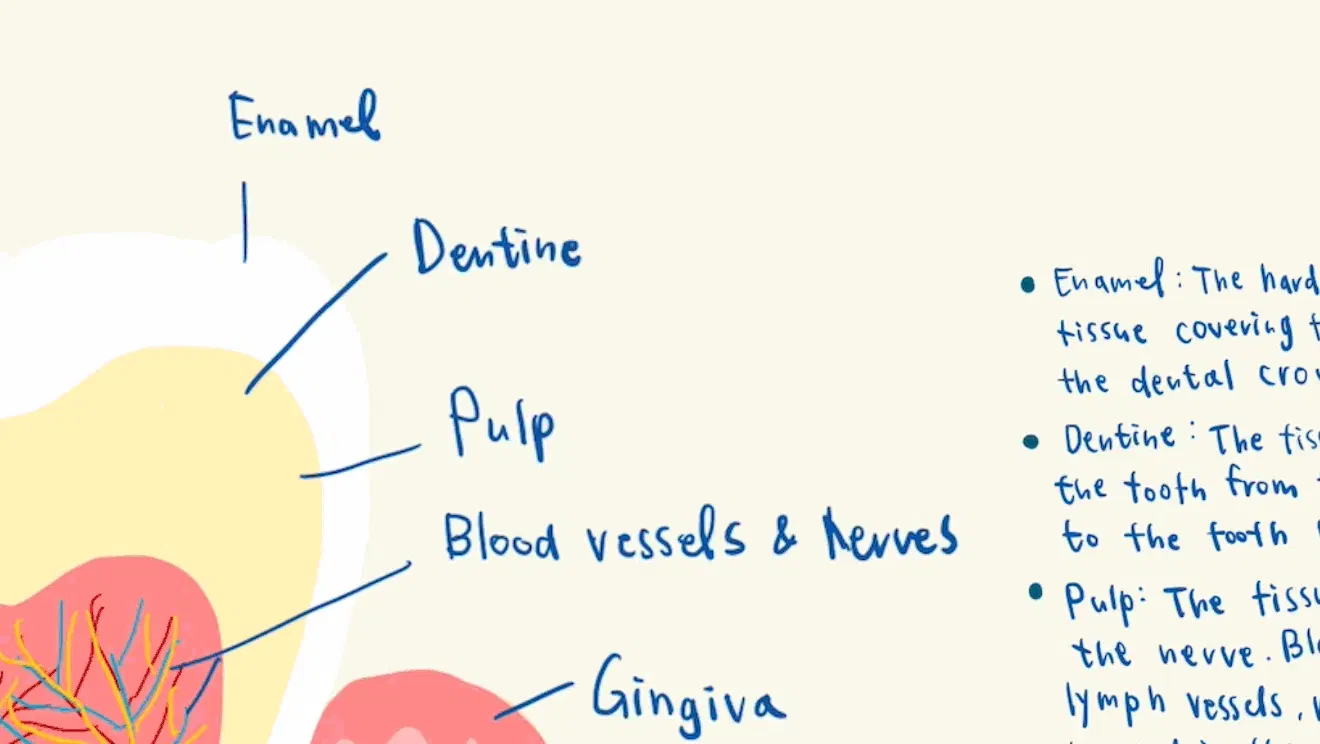 Enamel
Dentine
Pulp
Blood vessels & Nerves
Gingiva
• Enamel: The hard
tissue covering
the dental
• Dentine: The
the tooth from
to the tooth
• Pulp: The
the nerve.
lymph vessels,